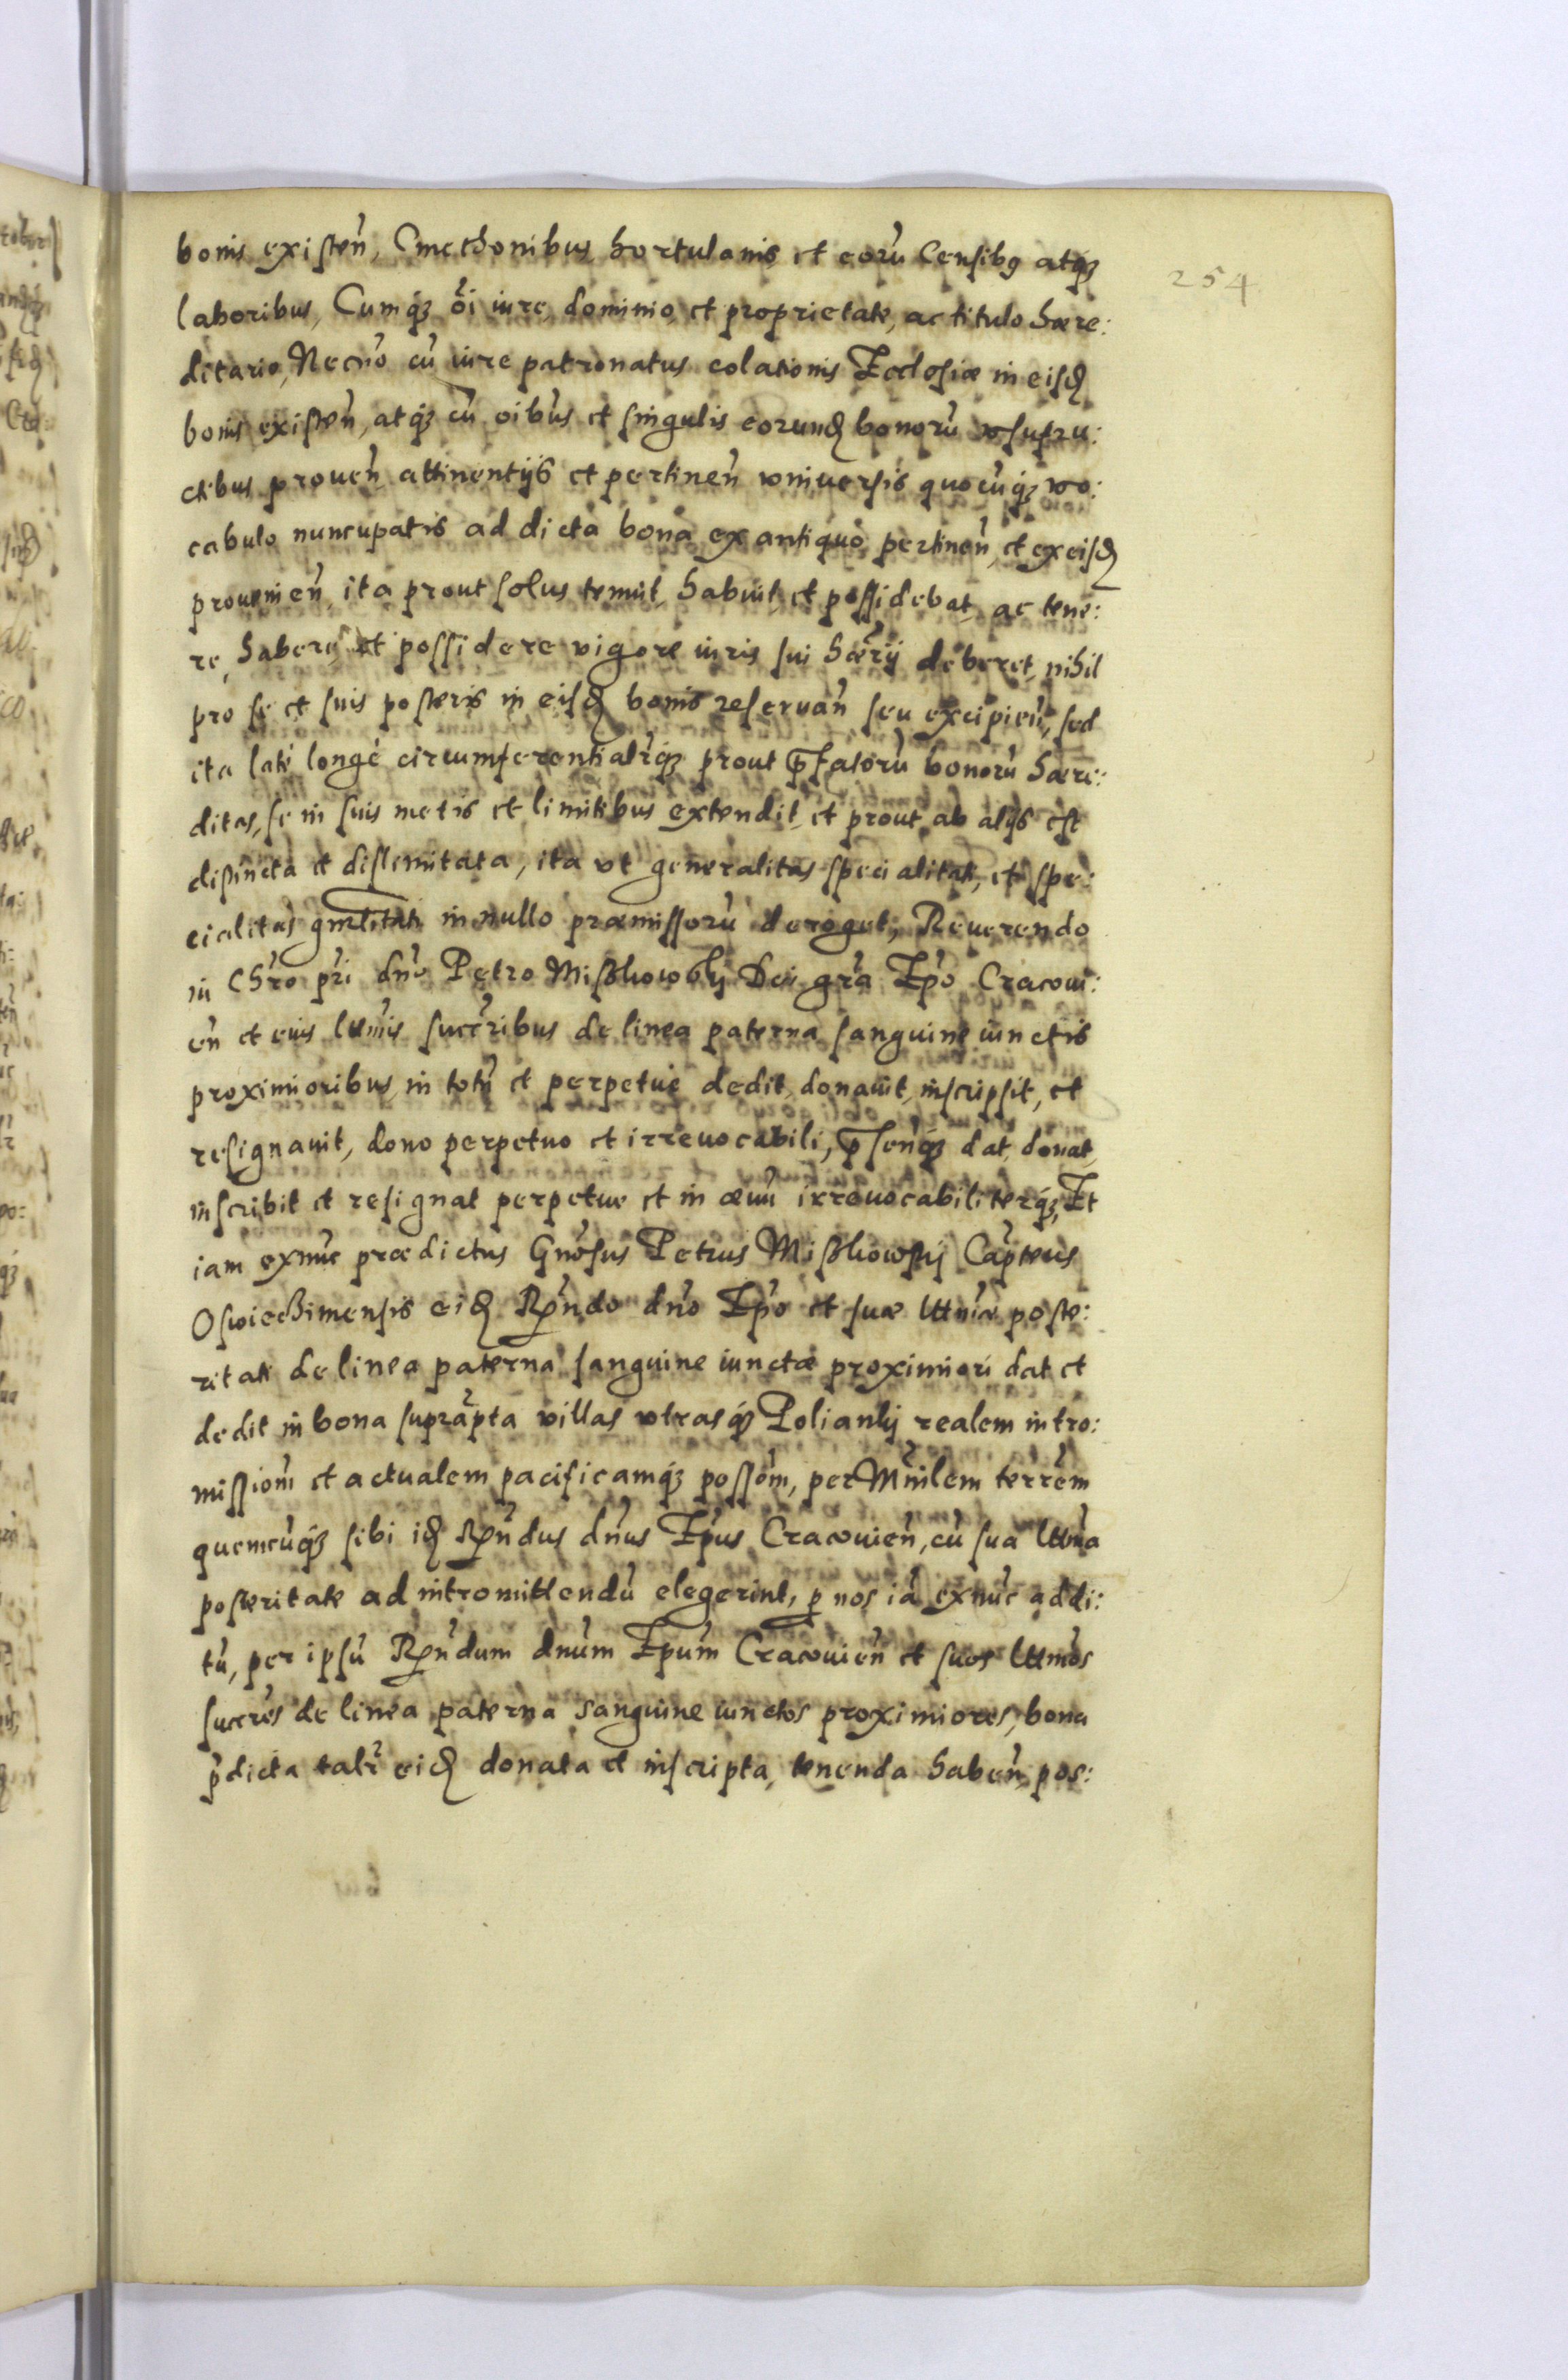 254
bonis existen̄, Cmethonibus hortulanis et eorū Censibq atq́ꝫ
laboribus, Cumq́ꝫ o̅i iure, dominio et proprietate, ac titulo hære:
ditario, Necno̅ cū iure patronatus colationis Ecclesiæ in eisd
bonis existen̄, atq́ꝫ cū oībus et singulis eorund bonorū vsufru:
ctibus proven̄ attinentijs et pertinen̄ vniuersis quocūq́ꝫ vo:
cabulo nuncupatis ad dicta bona ex antiquo pertinen̄, et ex eisd
prouenien̄, ita prout solus tenuit habuit et possidebat, ac tene:
re, habere, et possidere vigore iuris sui hær̄ij deberet, nihil
pro se et suis posteris in eisd bonis reseruan̄ seu excipien̄, sed
ita latè longè circumferentialr̄q́ꝫ prout p̄fatorū bonorū hære:
ditas, se in suis metis et limitibus extendit, et prout ab alijs est
distincta et dislimitata, ita vt generalitas specialitati, et spe:
cialitas gn̄rlitati in nullo præmissorū deroget; Reuerendo
in Chr̄o pr̄i dn̄o Petro Mißkowskij Dei gr̄a Ep̄o Cracoui:
en̄ et eius lt̄imis succr̄ibus de linea paterna sanguine iunctis
proximioribus, in totū et perpetue dedit, donauit, inscripsit, et
resignauit, dono perpetuo et irreuocabili, p̄senq́ꝫ dat, donat,
inscribit et resignat perpetue et in æuū irreuocabiliterq́ꝫ, Et
iam exnūc prædictus Gn̄osus Petrus Mißkowskij Cap̄teus
Oswiecßimensis eid Rn̄do dn̄o Ep̄o et suæ lt̄imæ poste:
ritati de linea paterna sanguine iunctæ proximiori dat et
dedit in bona supra̅pta villas vtrasq́ꝫ Polianky realem intro:
missiom̄ et actualem pacificamq́ꝫ possom̄, per Mīnlem terrēm
quemcūq́ꝫ sibi id Rn̄dus dn̄us Ep̄us Cracouien̄, cū sua lt̄ima
posteritate ad intromittendū elegerint, p nos iā exnūc addi:
tū, per ipsū Rn̄dum dn̄um Ep̄um Cracouien̄ et suos lt̄imos
succr̄es de linea paterna sanguine iunctos proximiores, bona
p̄dicta talr̄ eid donata et inscripta, tenenda haben̄, pos: